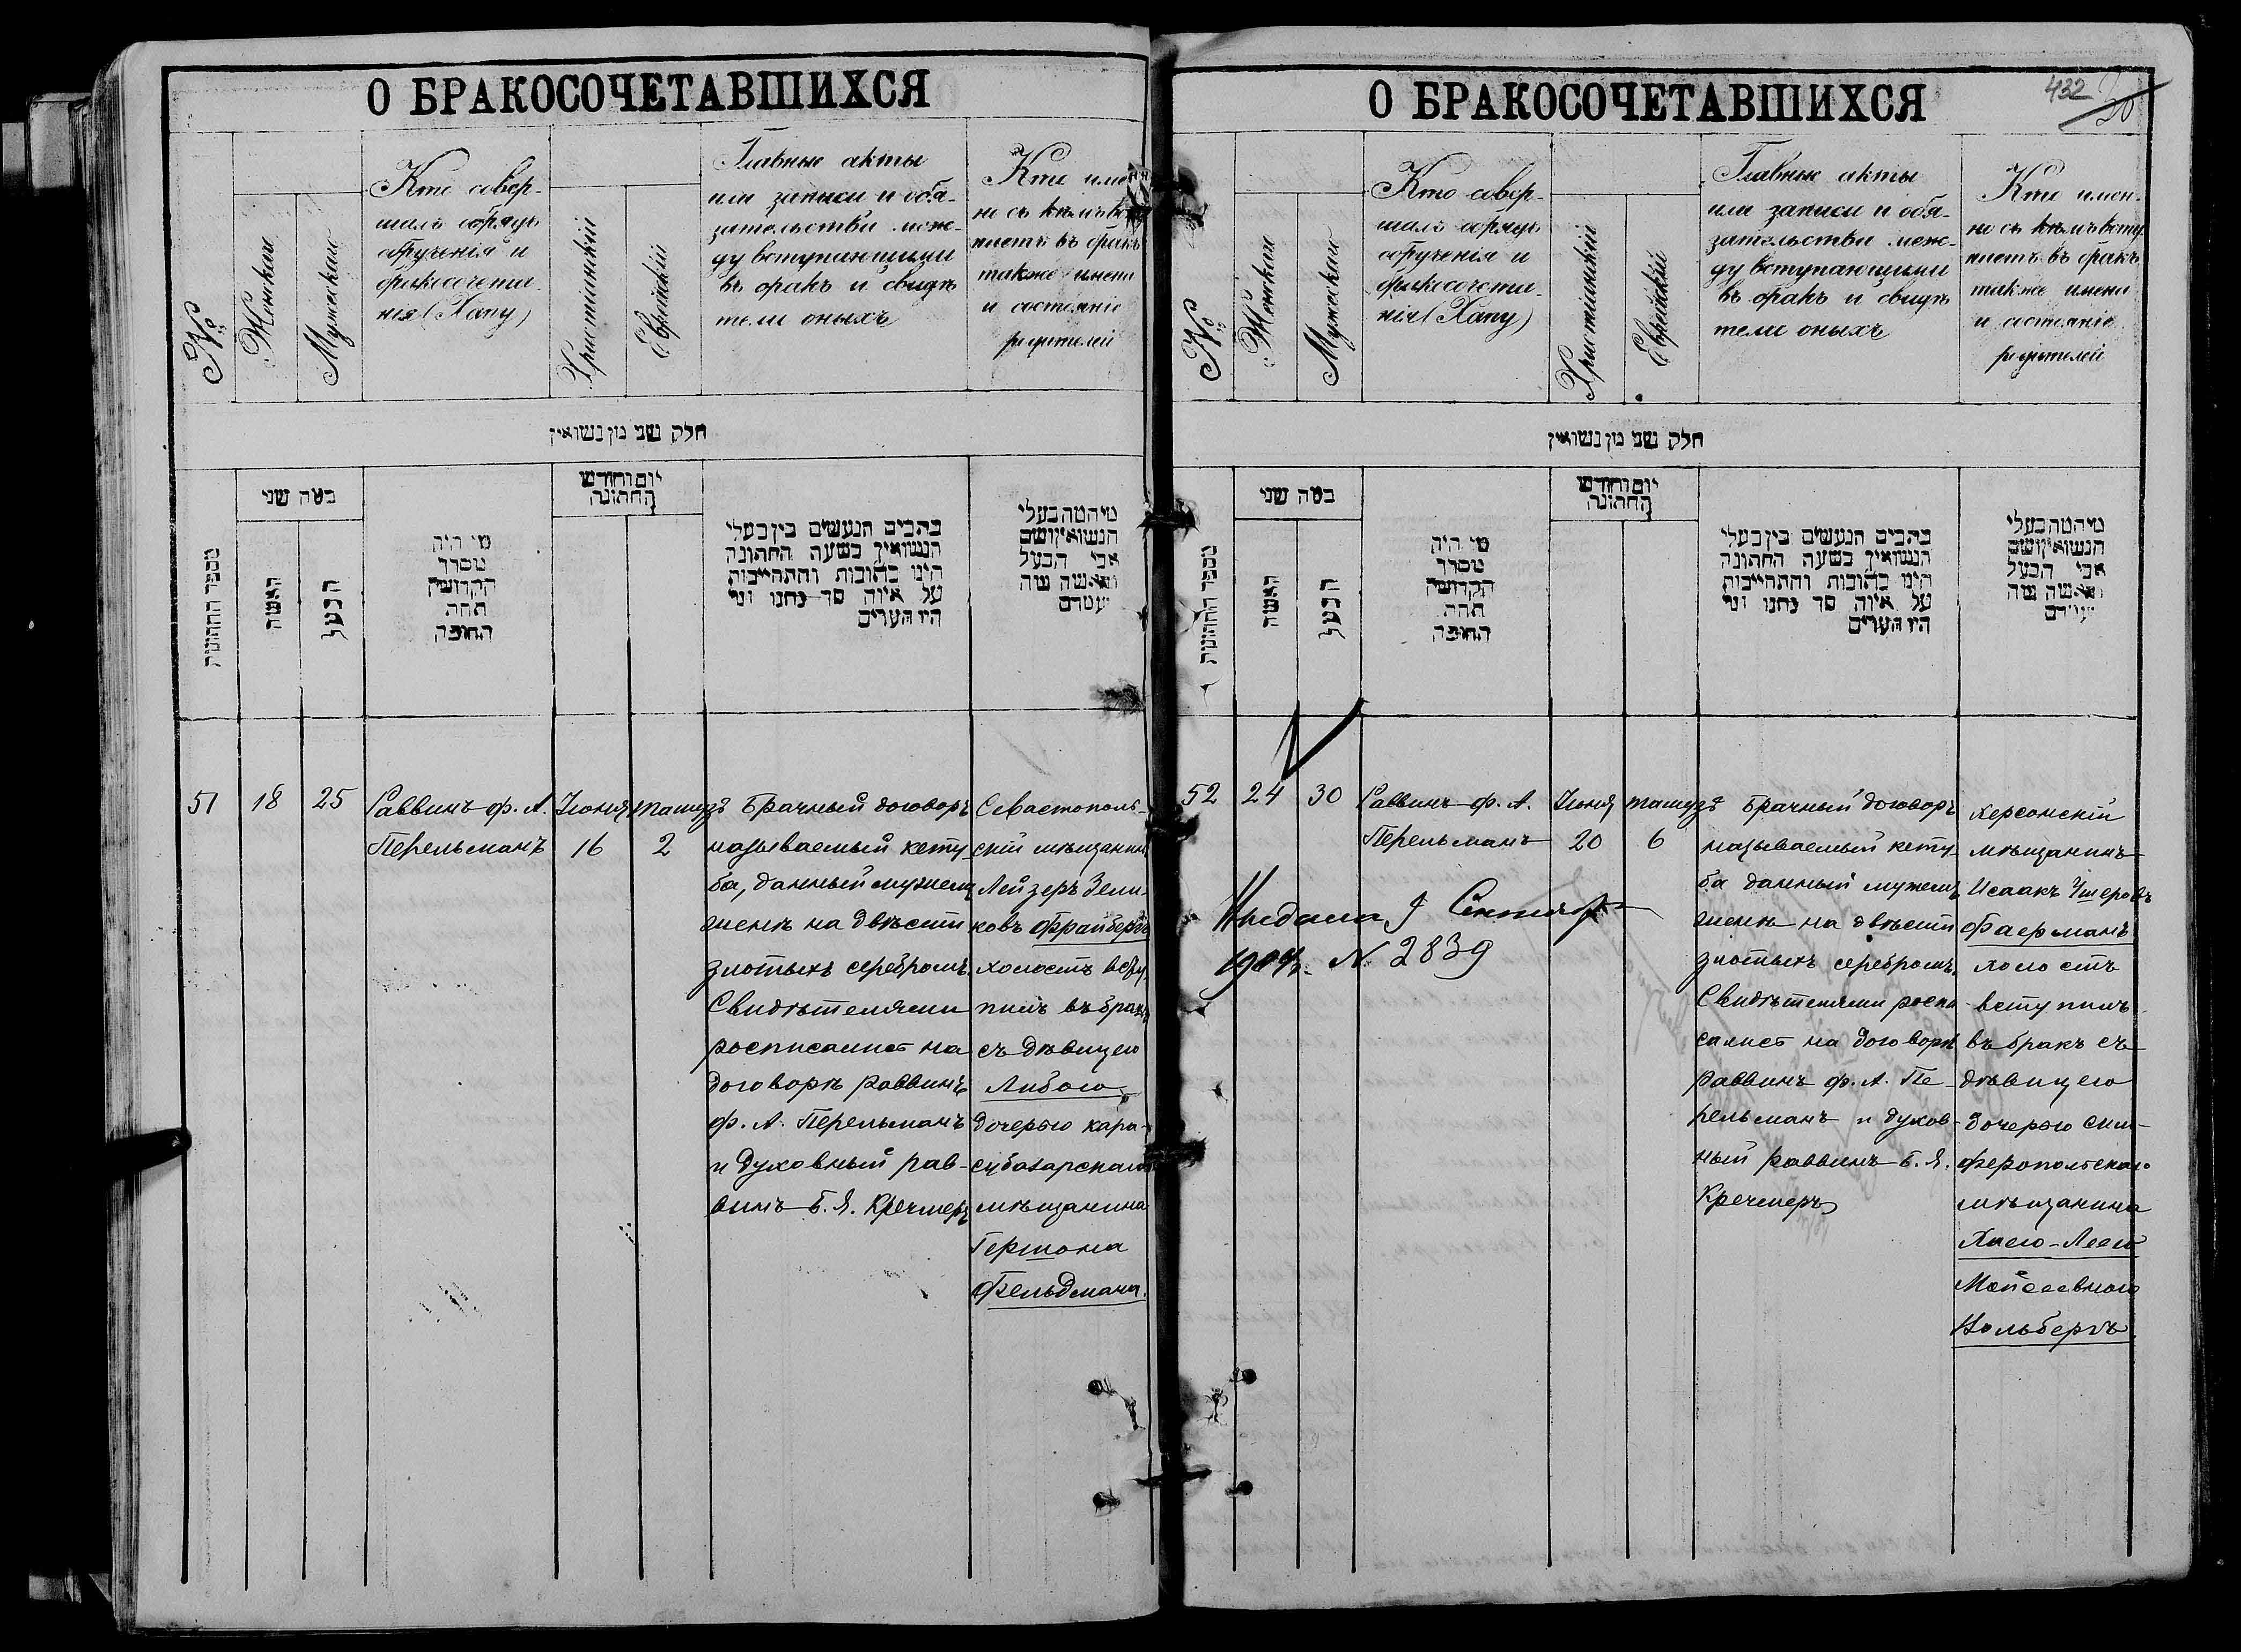 О БРАКОСОЧЕТАВШИХСЯ
№
Женская
Мужеская
Кто совер-
шалъ обрядъ
обрученія и
бракосочета-
нія (Хапу)
Христіанскій
Еврейскій
Главные акты
или записи и обя-
зательства меж-
ду вступающими
въ бракъ и свидѣ
тели оныхъ
Кто имен
но съ кѣмъ всту
паетъ въ бракъ
также имена
и состояніе
родителей
חלק שני מן נשואין
מספר החתונות
כמה שני
האשה
הבעל
מי היה
מסדר
הקדושין
תחת
החופה
יום וחודש
החתונה
כתבים הנעשים בין בעלי
הנשואין בשעת החתונה
היינו כתובות והתחייבות
על איזה סך נתנו ומי
היו העדים
מי המה בעלי
הנשואין ושם
אבי הבעל
והאשה מה
מעמדם
51
18
25
Раввинъ ф. А.
Перельманъ
Іюня
16
тамузъ
2
Брачный договоръ
называемый кету
ба, данный мужемъ
женѣ на двѣсти
злотыхъ серебромъ.
Свидѣтелями
росписались на
договорѣ раввинъ
ф. А. Перельманъ
и духовный рав-
винъ Б. Я. Кречмеръ
Севастополь-
скій мѣщанинъ
Лейзеръ Зели-
ковъ Фрайбергъ
холостъ всту
пилъ въ бракъ
съ дѣвицею
Любою
дочерью кара-
субазарскаго
мѣщанина
Гершона
Фельдмана.
О БРАКОСОЧЕТАВШИХСЯ
432
№
Женская
Мужеская
Кто совер-
шалъ обрядъ
обрученія и
бракосочета-
нія (Хапу)
Христіанскій
Еврейскій
Главные акты
или записи и обя-
зательства меж-
ду вступающими
въ бракъ и свидѣ
тели оныхъ
Кто имен-
но съ кѣмъ всту
паетъ въ бракъ
также имена
и состояніе
родителей
חלק שני מן נשואין
מספר החתונות
כמה שני
האשה
הבעל
מי היה
מסדר
הקדושין
תחת
החופה
יום וחודש
החתונה
כתבים הנעשים בין בעלי
הנשואין בשעת החתונה
היינו כתובות והתחייבות
על איזה סך נתנו ומי
היו העדים
מי המה בעלי
הנשואין ושם
אבי הבעל
והאשה מה
מעמדם
52
24
30
Раввинъ ф. А.
Перельманъ
Іюня
20
тамузъ
6
Брачный договоръ
называемый кету
ба данный мужемъ
женѣ на двѣсти
злотыхъ серебромъ.
Свидѣтелями роспи
сались на договорѣ
раввинъ ф. А. Пе-
рельманъ и духов-
ный раввинъ Б. Я.
Кречмеръ
Херсонскій
мѣщанинъ
Исаакъ Ушеровъ
Фаерманъ
холостъ
вступилъ
въ бракъ съ
дѣвицею
дочерью сим-
феропольскаго
мѣщанина
Хаею-Леею
Мойсеевною
Нольбергъ.
Выдана 9 Сентября
1909 г. № 2839